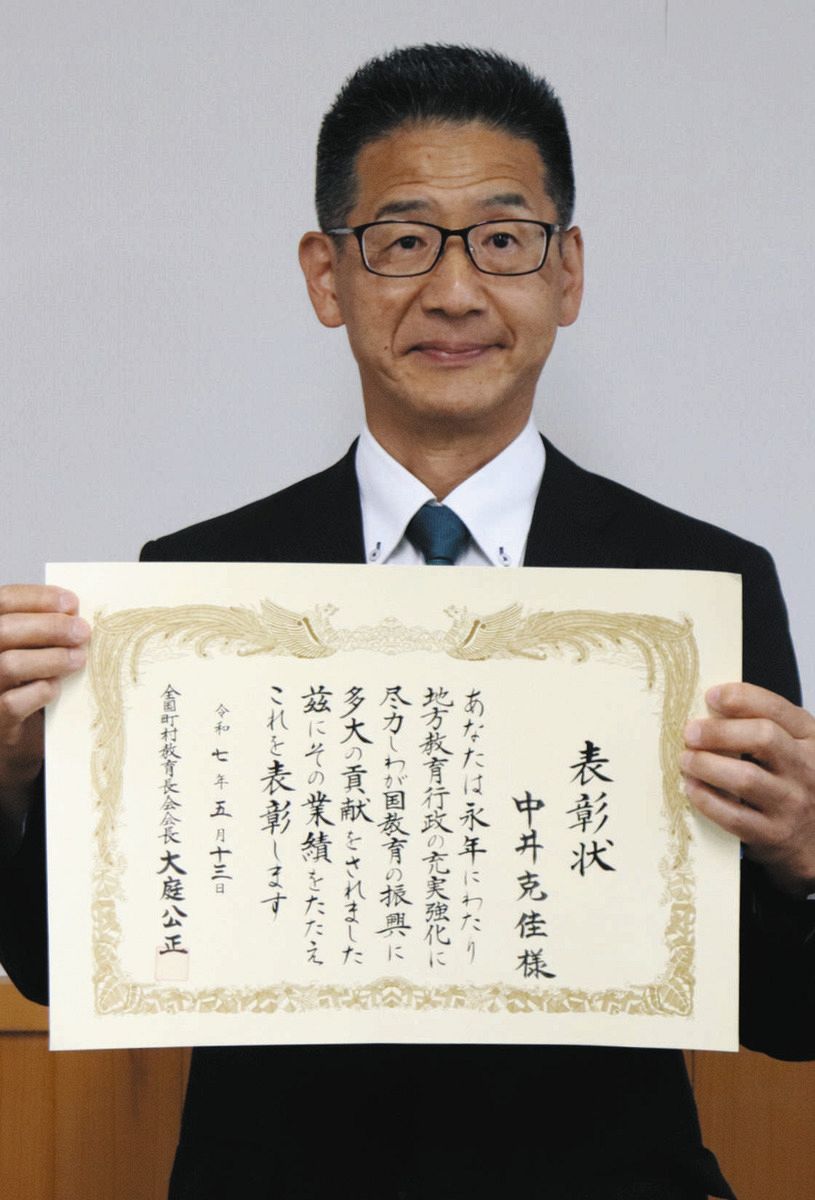 表彰状
中井克佳様
あなたは永年にわたり
地方教育行政の充実強化に
尽力しわが国教育の振興に
多大の貢献をされました
玆にその業績をたたえ
これを表彰します
令和七年五月十三日
全国町村教育長会会長 大庭公正